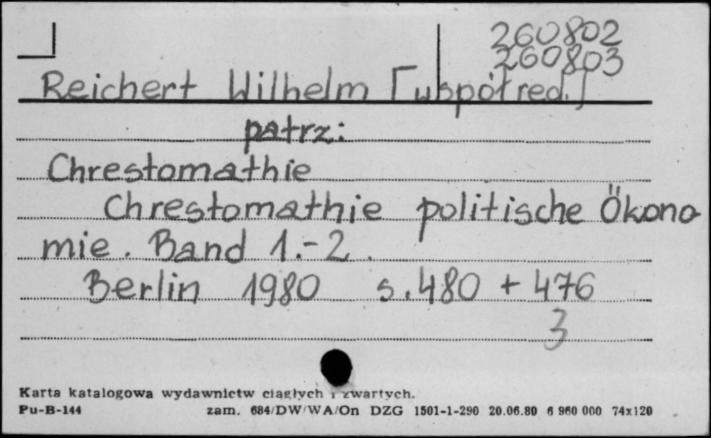 260802
260803
Reichert Wilhelm [współred.]
patrz:
Chrestomathie
Chrestomathie politische Ökono
mie. Band 1.-2.
Berlin 1980 s. 480 + 476
3
Karta katalogowa wydawnictw ciągłych i zwartych.
Pu-B-144 zam. 684/DW/WA/On DZG 1501-1-290 20.06.80 6 960 000 74x120